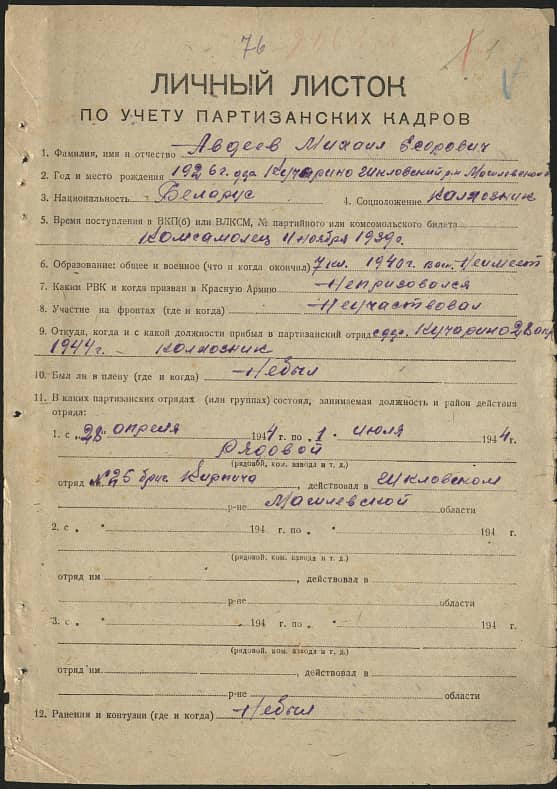 76
ЛИЧНЫЙ ЛИСТОК
ПО УЧЕТУ ПАРТИЗАНСКИХ КАДРОВ
1. Фамилия, имя и отчество Авдеев Михаил Егорович
2. Год и место рождения 1926 г. дда Кучарино Шкловский р-н Магилевской
3. Национальность Беларус 4. Соцположение Калхозник
5. Время поступления в ВКП(б) или ВЛКСМ, № партийного или комсомольского билета
Комсамолец 11 ноября 1939 г.
6. Образование: общее и военное (что и когда окончил) 7 кл. 1940 г. вои. Неимеет
7. Каким РВК и когда призван в Красную Армию Непризовался
8. Участие на фронтах (где и когда) Неучаствовал
9. Откуда, когда и с какой должности прибыл в партизанский отряд Кучарино 28 апр
1944 г. - Колхозник
10. Был ли в плену (где и когда) Небыл
11. В каких партизанских отрядах (или группах) состоял, занимаемая должность и район действия
отряда:
1. с „28" апреля 1944 г. по „1" июля 1944 г.
Рядовой
(рядовой, ком. взвода и т. д.)
отряд № 25 бриг. Кирпича, действовал в Шкловском
р-не Магилевской области
2. с „ " 194 г. по „ " 194 г.
(рядовой, ком. взвода и т. д.)
отряд им , действовал в
р-не области
3. с „ " 194 г. по „ " 194 г.
(рядовой, ком. взвода и т. д.)
отряд им. , действовал в
р-не области
12. Ранения и контузии (где и когда) Небыл